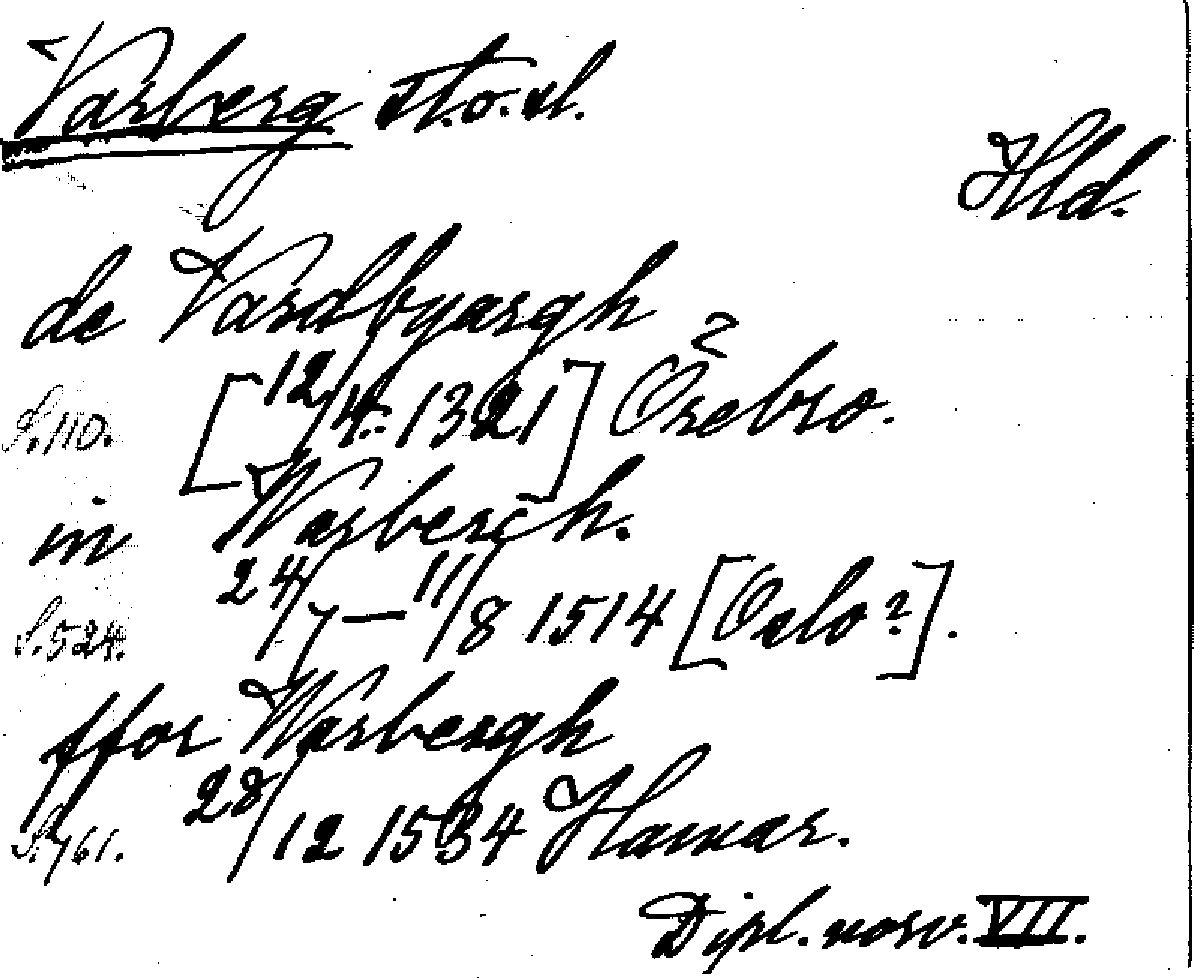 Varberg st. o. sl.
Hld.
de Vardbyargh
S. 110. [12/4 1321] Örebro.
in Warberch.
S. 524. 24/7 — 11/8 1514 [Oslo?].
ffor Warbergh
S. 761. 28/12 1534 Hamar.
Dipl. norv. VII.